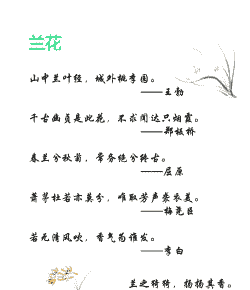 兰花
山中兰叶径，城外桃李园。
——王勃
千古幽贞是此花，不求闻达只烟霞。
——郑板桥
春兰兮秋菊，常务绝兮终古。
——屈原
萧茅杜若亦莫分，唯取芳声袭衣美。
——梅尧臣
若无清风吹，香气为谁发。
——李白
兰之猗猗，扬扬其香。